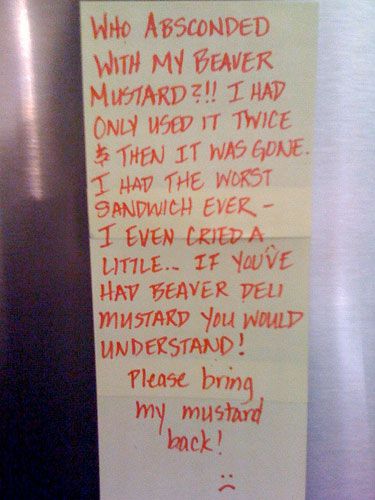 WHO ABSCONDED
WITH MY BEAVER
MUSTARD?!! I HAD
ONLY USED IT TWICE
& THEN IT WAS GONE.
I HAD THE WORST
SANDWICH EVER -
I EVEN CRIED A
LITTLE.. IF YOU'VE
HAD BEAVER DELI
MUSTARD YOU WOULD
UNDERSTAND!
Please bring
my mustard
back!
:(